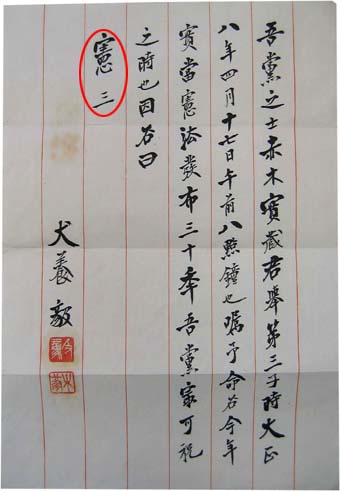 吾黨之士赤木寳蔵君舉第三子時大正
八年四月十七日午前八點鐘也嘱予命名今年
實當憲法發布三十年吾黨最可祝
之時也因名曰
憲三
犬養毅